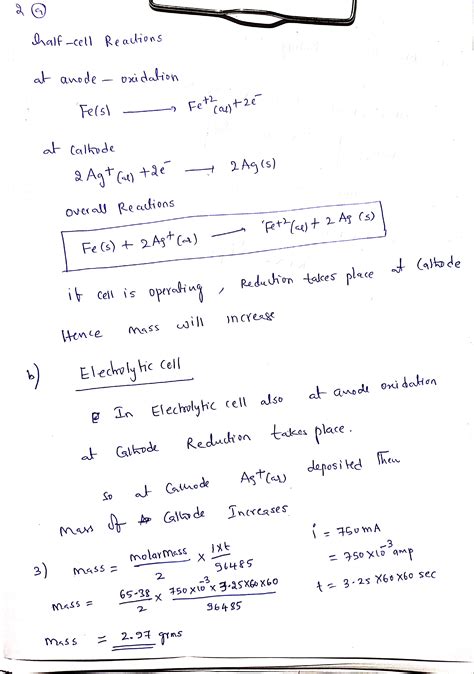 2 a
half-cell Reactions
at anode - oxidation
Fe(s) ⟶ Fe⁺²(aq) + 2e⁻
at Cathode
2Ag⁺(aq) + 2e⁻ ⟶ 2Ag(s)
overall Reactions
Fe(s) + 2Ag⁺(aq) ⟶ Fe⁺²(aq) + 2Ag(s)
if cell is operating, Reduction takes place at Cathode
Hence mass will increase
b) Electrolytic cell
In Electrolytic cell also at anode oxidation
at Cathode Reduction takes place.
so at Cathode Ag⁺(aq) deposited Then
Mass of Cathode Increases
3) mass = molarmass/2 × I×t/96485
i = 750 mA
= 750×10⁻³ amp
t = 3.25×60×60 sec
mass = 65.38/2 × 750×10⁻³×3.25×60×60/96485
mass = 2.97 grms